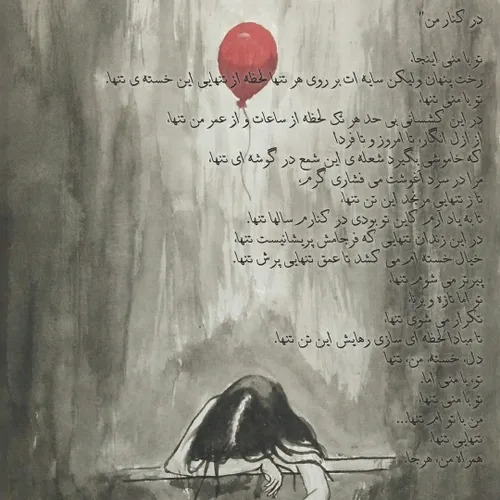 در کنار من"
تو با منی اینجا،
رخت پنهان ولیکن سایه ات بر روی هر تنها لحظه از تنهایی این خسته ی تنها،
تو با منی تنها،
در این کشسانی بی حد هر تک لحظه از ساعات و از عمر من تنها،
از ازل انگار، تا امروز و تا فردا
که خاموشی بگیرد شعله ی این شمع در گوشه ای تنها،
مرا در سرد آغوشت می فشاری گرم،
تا ز تنهایی مرنجد این تن تنها،
تا به یاد آرم کاین تو بودی در کنارم سالها تنها،
در این زندان تنهایی که فرجامش پریشانیست تنها،
خیال خسته ام می کشد تا عمق تنهایی پرش تنها،
پیرتر می شوم تنها،
تو اما تازه و برنا،
تکرار می شوی تنها،
تا مبادا لحظه ای سازی رهایش این تن تنها،
دل، خسته، من، تنها
تو، با منی اما،
تو با منی تنها،
من با تو ام تنها...
تنهایی تنها،
همراه من، هرجا.